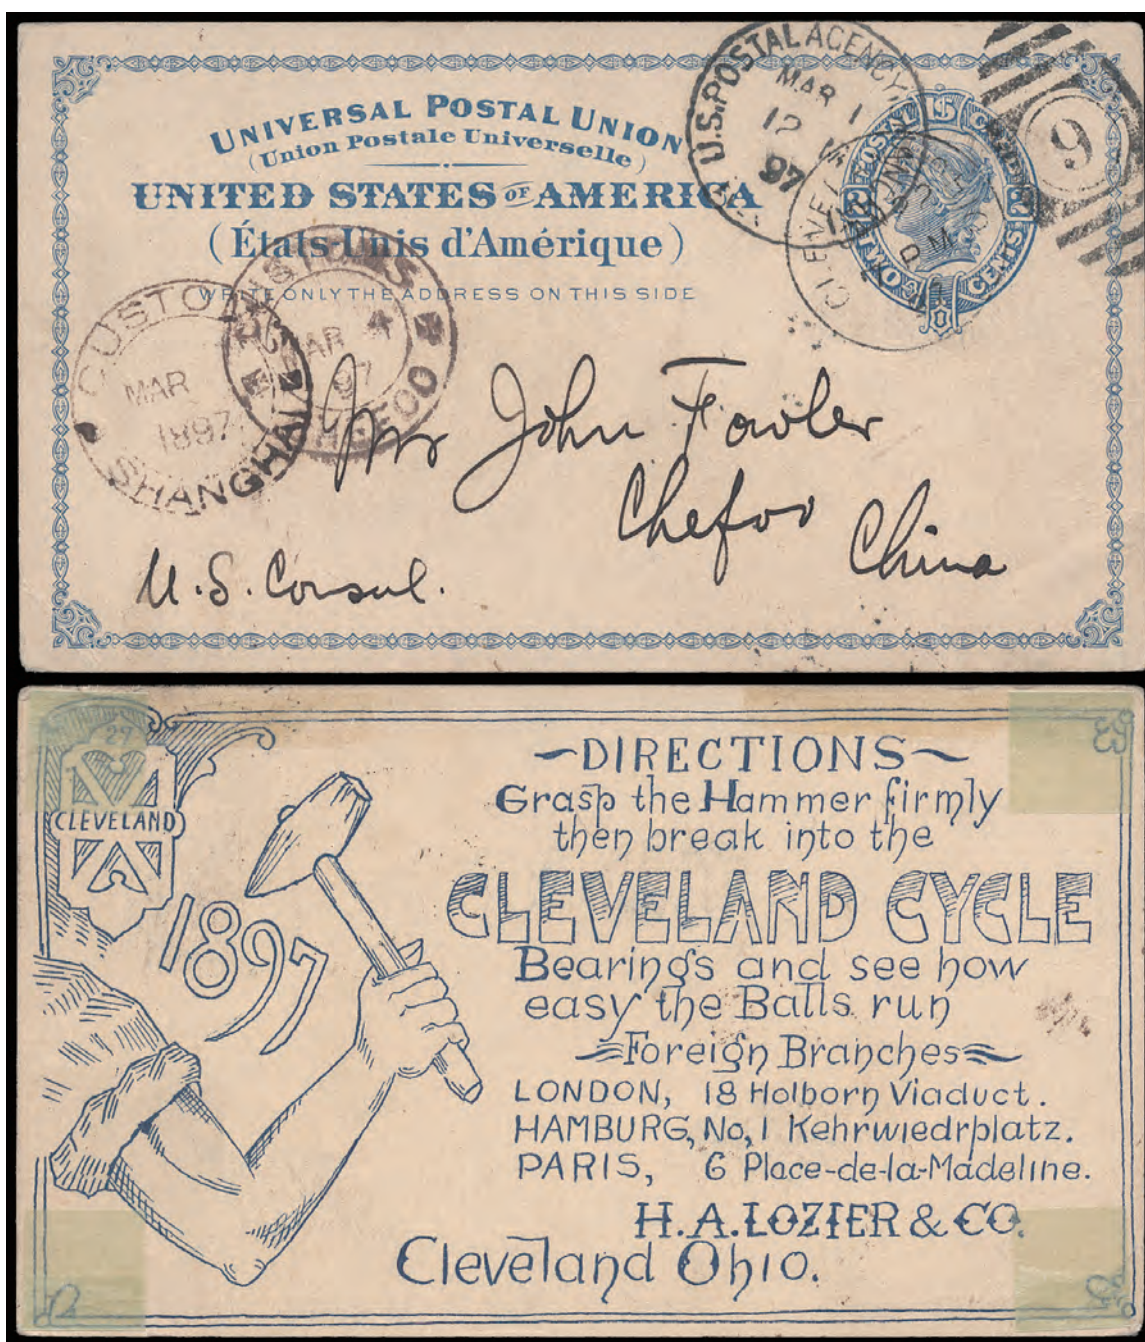 UNIVERSAL POSTAL UNION
(Union Postale Universelle)
UNITED STATES OF AMERICA
(États-Unis d'Amérique)
WRITE ONLY THE ADDRESS ON THIS SIDE
U.S. POSTAL AGENCY
MAR 1
12
97
POSTAL CARD
2 2
TWO CENTS
9
CUSTOMS
MAR
1897
SHANGHAI
CUSTOMS
MAR 4
97
CHEFOO
Mr John Fowler
Chefoo
China
U.S. Consul.
CLEVELAND
1897
~DIRECTIONS~
Grasp the Hammer firmly
then break into the
CLEVELAND CYCLE
Bearings and see how
easy the Balls run
Foreign Branches
LONDON, 18 Holborn Viaduct.
HAMBURG, No, 1 Kehrwiedrplatz.
PARIS, 6 Place-de-la-Madeline.
H.A. LOZIER & CO.
Cleveland Ohio.